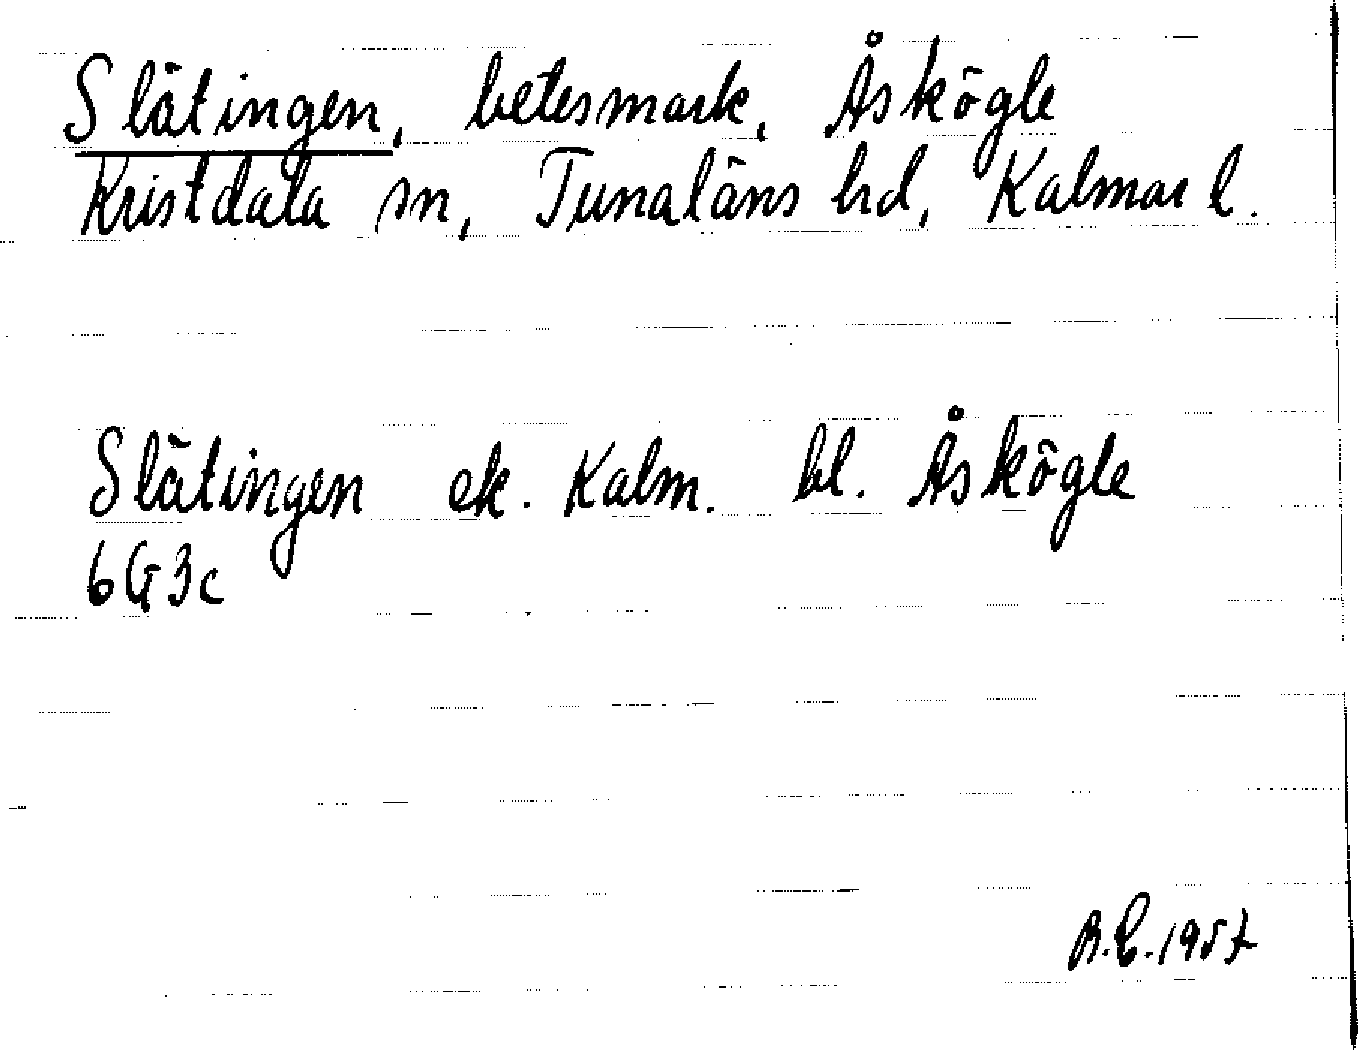 Slätingen, betesmark, Åskögle
Kristdala sn, Tunaläns hd, Kalmar l.
Slätingen ek. Kalm. bl. Åskögle
6G3c
B.E. 1957